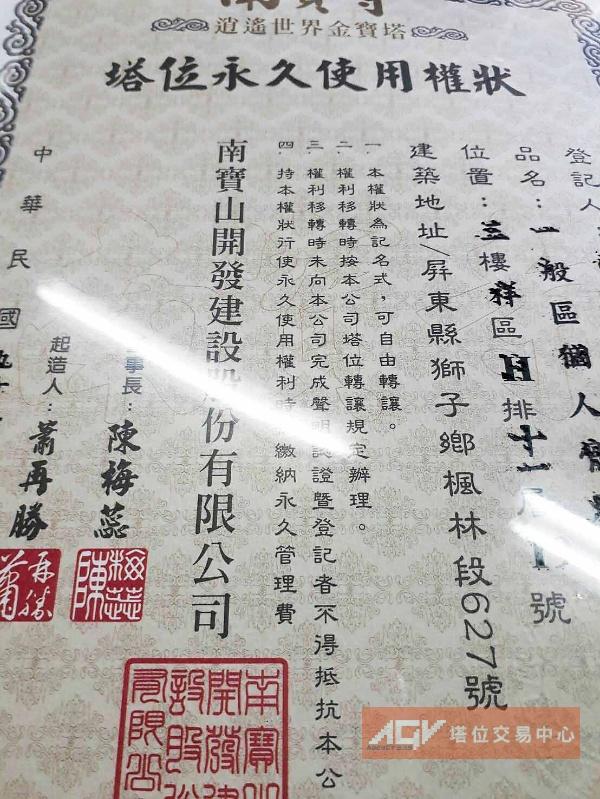 南寶寺
逍遙世界金寶塔
塔位永久使用權狀
登記人
品名：一般區個人寶
位置：三樓祥區H排十一層 號
建築地址/屏東縣獅子鄉楓林段627號
一、本權狀為記名式，可自由轉讓。
二、權利移轉時按本公司塔位轉讓規定辦理。
三、權利移轉時未向本公司完成聲明認證暨登記者不得抵抗本公
四、持本權狀行使永久使用權利時 繳納永久管理費
南寶山開發建設股份有限公司
事長：陳梅蕊
起造人：蕭再勝
中華民國九十
陳梅蕊
蕭再勝
南寶山開發建設股份有限公
AGV 塔位交易中心